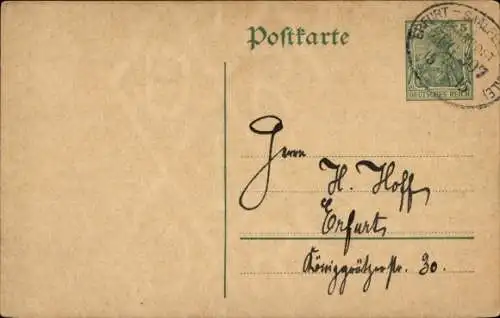 Postkarte
ERFURT –
5
DEUTSCHES REICH
Herrn
H. Hoff,
Erfurt,
Königgrätzerstr. 30.